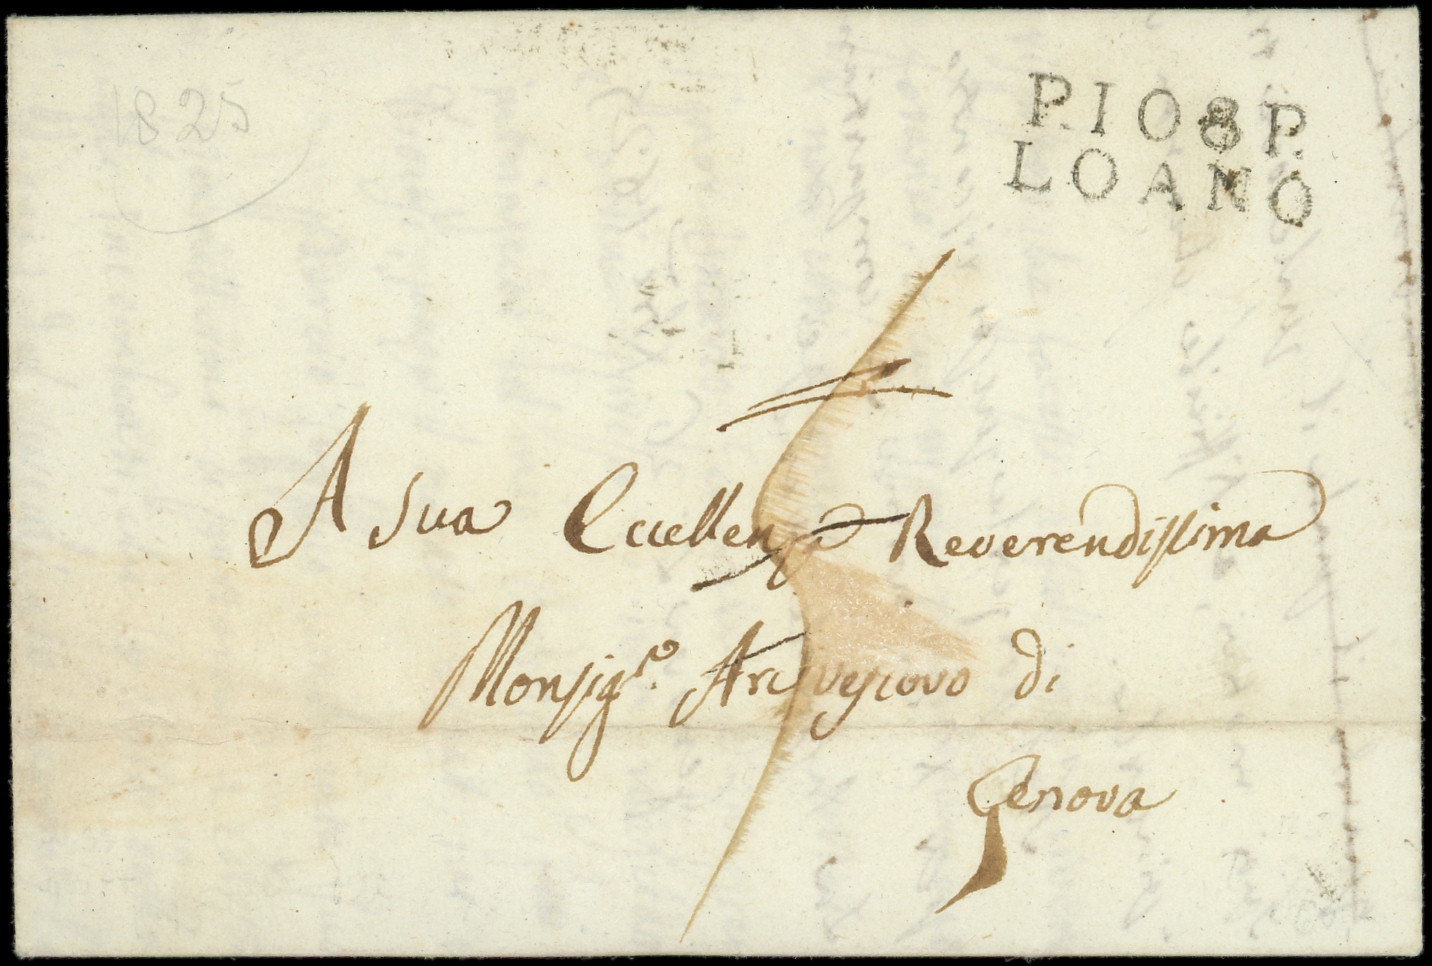 1825
P.108P.
LOANO
A Sua Eccellenza Reverendissima
Monsig.re Arcivescovo di
Genova